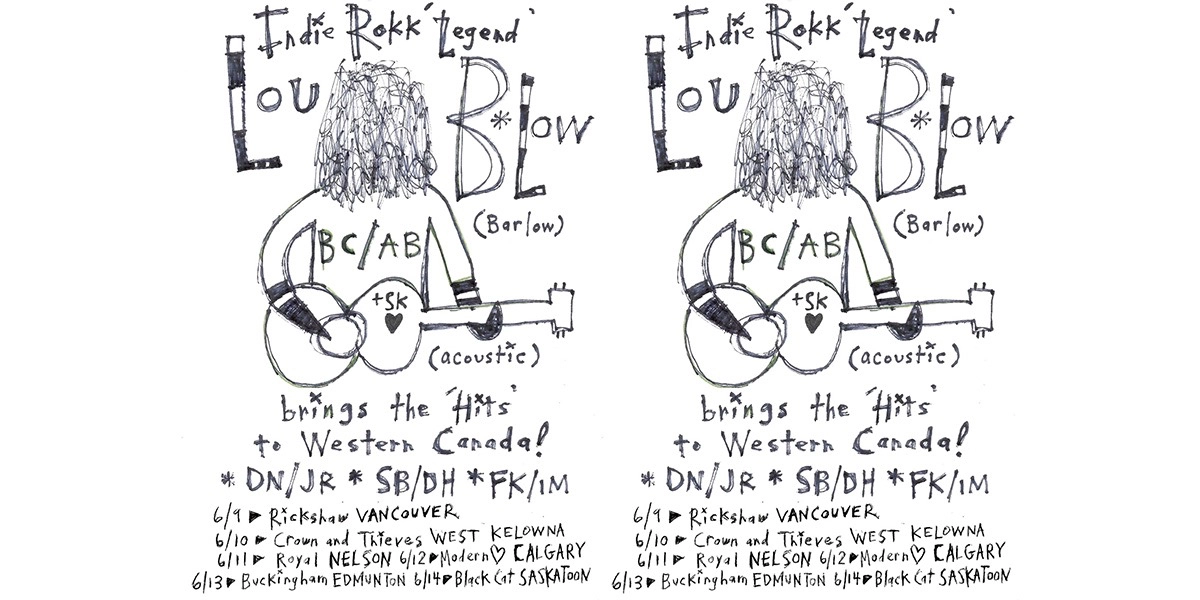 Indie Rokk 'Legend'
Lou B*Low
(Barlow)
BC/AB
+SK
(acoustic)
brings the 'Hits'
to Western Canada!
* DN/JR * SB/DH * FK/IM
6/9 ▶ Rickshaw VANCOUVER
6/10 ▶ Crown and Thieves WEST KELOWNA
6/11 ▶ Royal NELSON 6/12 ▶ Modern♡ CALGARY
6/13 ▶ Buckingham EDMUNTON 6/14 ▶ Black Cat SASKATOON
Indie Rokk 'Legend'
Lou B*Low
(Barlow)
BC/AB
+SK
(acoustic)
brings the 'Hits'
to Western Canada!
* DN/JR * SB/DH * FK/IM
6/9 ▶ Rickshaw VANCOUVER
6/10 ▶ Crown and Thieves WEST KELOWNA
6/11 ▶ Royal NELSON 6/12 ▶ Modern♡ CALGARY
6/13 ▶ Buckingham EDMUNTON 6/14 ▶ Black Cat SASKATOON